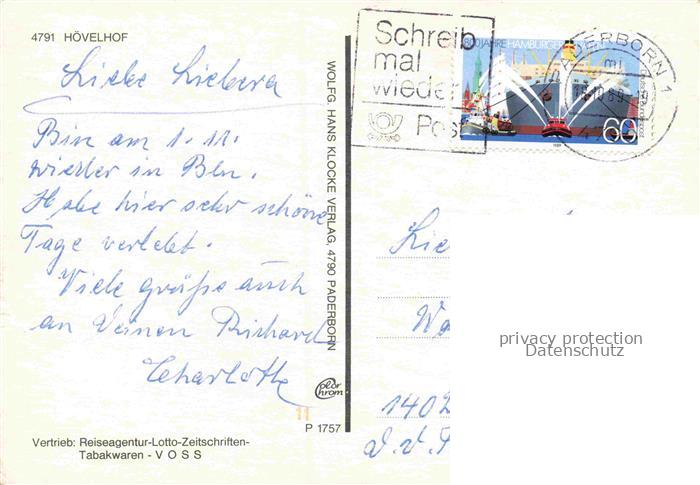 4791 HÖVELHOF
Liebe Liebera
Bin am 1. 11.
wieder in Bln.
Habe hier sehr schöne
Tage verlebt.
Viele grüße auch
an Deinen Richard
Charlotte
WOLFG. HANS KLOCKE VERLAG, 4790 PADERBORN
color
chrom
11
P 1757
Vertrieb: Reiseagentur-Lotto-Zeitschriften-
Tabakwaren - V O S S
Schreib
mal
wieder
Post
800 JAHRE HAMBURGER
60
PADERBORN 1
Lie
Wa
privacy protection
Datenschutz
1402